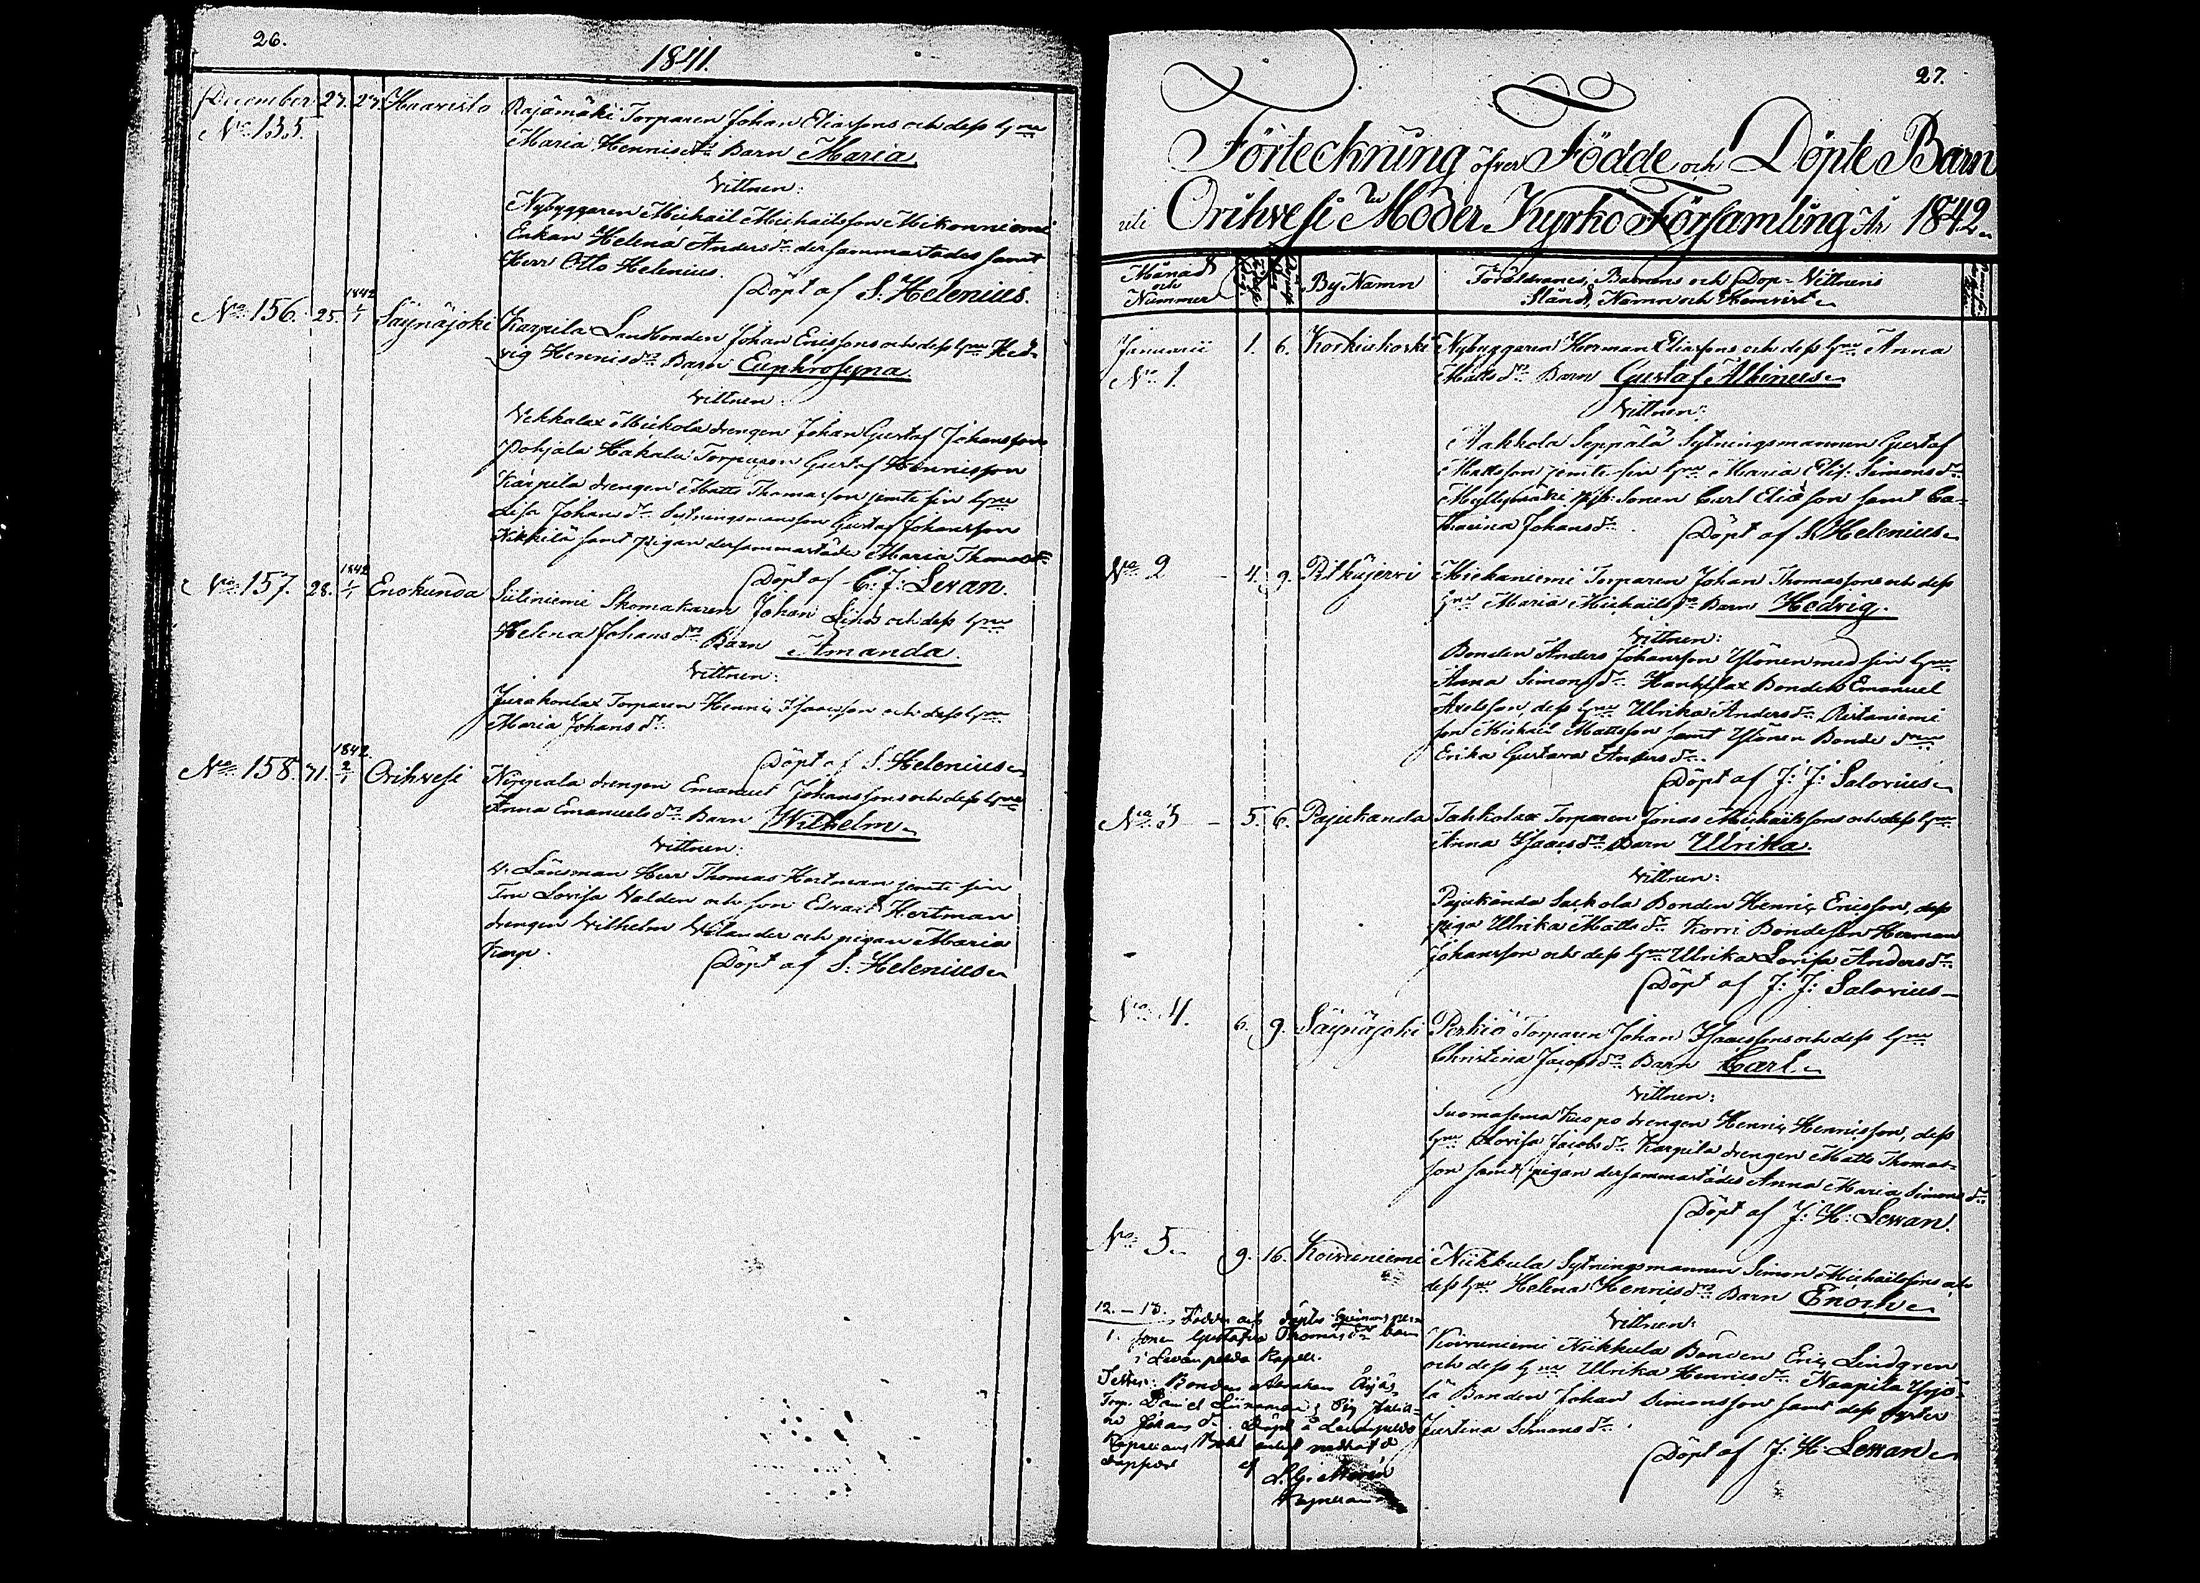 26.
1841.
December 27. 27. Haavisto Rajamäki Torparen Johan Eliassons och dess Hru
No 155. Maria Henrics dr Barn Maria.
Vittnen:
Nybyggaren Michaël Michaëlsson Mikonniemi
Enkan Helena Anders dr dersammastädes samt
Herr Otto Helenius.
Döpt af S. Helenius.
No 156. 25. 1842 1/1 Säynäjoki Karpila Landbonden Johan Ericssons och dess Hru Hed-
vig Henrics dr Barn Euphrosyna.
Vittnen:
Vekkalax Mickola drengen Johan Gustaf Johansson
Pohjala Hakala Torparen Gustaf Henricsson
Karpila drengen Matts Thomasson jemte sin Hru
Lisa Johans dr Sytningsmansson Gustaf Johansson
Nikkilä samt pigan dersammastädes Maria Thomas dr
Döpt af C. J. Levan.
No 157. 28. 1842 1/1 Enokunda Siitiniemi Skomakaren Johan Linds och dess Hru
Helena Johans dr Barn Amanda.
Vittnen:
Torparen Henric Isaacsson och dess Hru
Maria Johans dr
Döpt af S. Helenius
No 158. 31. 1842 2/1 Orihvesi drengen Emanuel Johanssons och dess Hru
Anna Emanuels dr Barn Wilhelm
Vittnen:
V. Länsman Herr Thomas Hertman jemte sin
Fru Lovisa Valden och son Edvard Hertman
drengen Vilhelm Velander och pigan Maria
Karp.
Döpt af S. Helenius
27.
Förteckning öfver Födde och Döpte Barn
uti Orihvesi Moder Kyrko Församling År 1842.
Månad och Nummer By Namn Föräldrarnes, Barnens och Dop-Vittnens
Stånd, Namn och Hemvist
Januarii 1. 6. Korkiakoski Nybyggaren Herman Eliassons och dess Hru Anna
No 1. Matts dr Barn Gustaf Albinus
Vittnen:
Vakkola Seppälä Sytningsmannen Gustaf
Mattsson jemte sin Hru Maria Elis. Simons dr
Myllymäki sonen Carl Eliasson samt Ca-
tharina Johans dr
Döpt af S. Helenius
No 2 4. 9. Pitkäjervi Miekaniemi Torparen Johan Thomassons och dess
Hru Maria Michaëls dr Barn Hedvig.
Vittnen:
Bonden Anders Johansson Ylönen med sin Hru
Anna Simons dr Bonden Emanuel
Axelsson, dess Hru Ulrika Anders dr Ristaniemi
son Michaël Mattsson samt Ylönen Bonde
Erika Gustava Anders dr
Döpt af J: J: Salovius
No 3 5. 6. Pajukanda Takkolax Torparen Jonas Michaëlssons och dess Hru
Anna Isaacs dr Barn Ulrika.
Vittnen:
Pajukanda Laskola Bonden Henric Ericsson, dess
piga Ulrika Matts dr Korri Bondeson Herman
Johansson och dess Hru Ulrika Lovisa Anders dr
Döpt af J: J: Salovius
No 4. 6. 9. Säynäjoki Perkiö Torparen Johan Isaacssons och dess Hru
Christina Jacobs dr Barn Carl
Vittnen:
Suomasema drengen Henric Henricsson, dess
Hru Lovisa Jacobs dr Karpila drengen Matts Thomas-
son samt pigan dersammastädes Anna Maria Simons dr
Döpt af J: H: Levan.
No 5. 9. 16. Koivuniemi Nickula Sytningsmannen Simon Michaëlssons och
dess Hru Helena Henrics dr Barn Enoch
Vittnen:
Koivuniemi Nickula Bonden Eric Lindgren
och dess Hru Ulrika Henrics dr Naapila Yrjö-
lä Bonden Johan Simonsson samt dess syster
Justina Simons dr
Döpt af J: H: Levan
12. – 13. Födde och döpte
1. Gustafva Thomas dr barn
i Kapell.
Bonden Abraham
Torp. Daniel
Johans dr Döpt